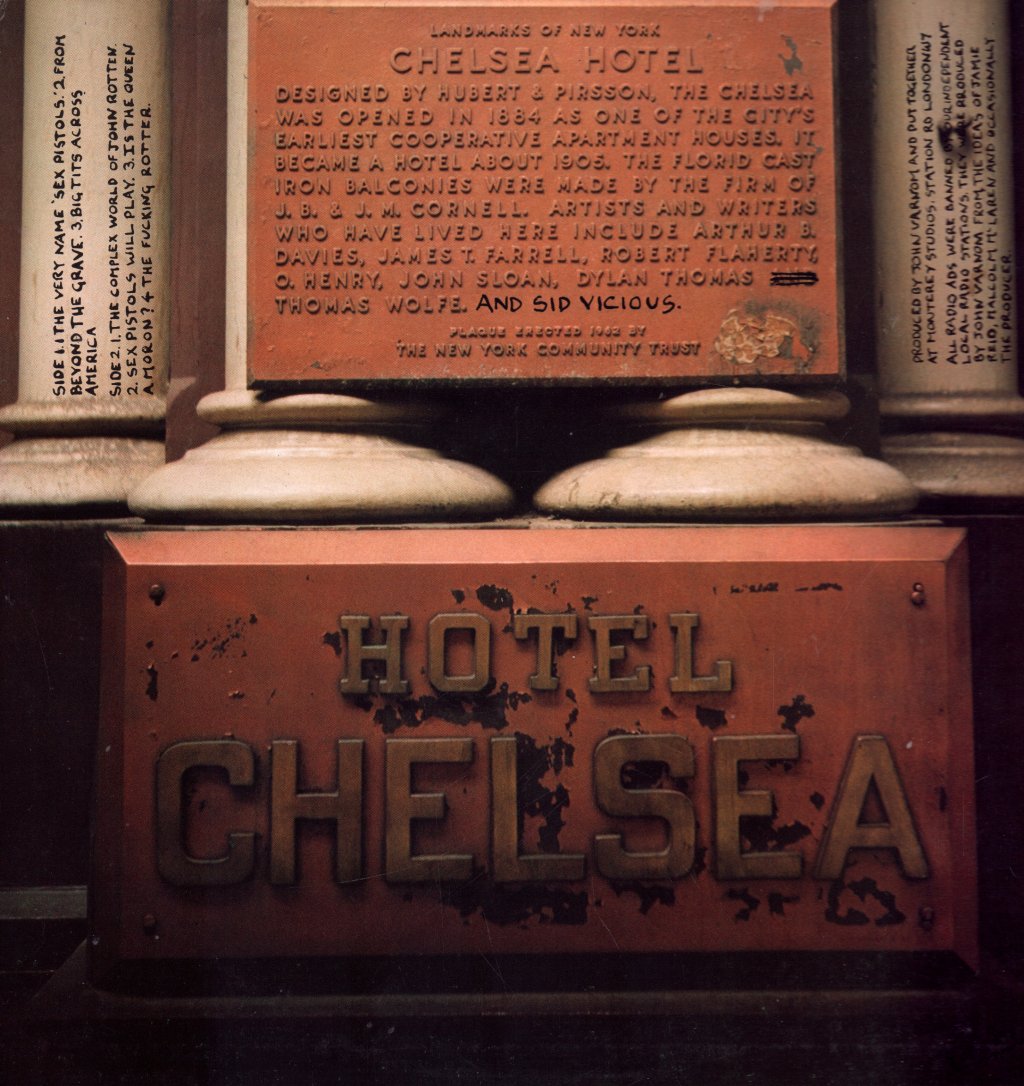 SIDE 1. 1. THE VERY NAME 'SEX PISTOLS.' 2. FROM
BEYOND THE GRAVE. 3. BIG TITS ACROSS
AMERICA
SIDE 2. 1. THE COMPLEX WORLD OF JOHN ROTTEN.
2. SEX PISTOLS WILL PLAY. 3. IS THE QUEEN
A MORON? 4 THE FUCKING ROTTER.
LANDMARKS OF NEW YORK
CHELSEA HOTEL
DESIGNED BY HUBERT & PIRSSON, THE CHELSEA
WAS OPENED IN 1884 AS ONE OF THE CITY'S
EARLIEST COOPERATIVE APARTMENT HOUSES. IT
BECAME A HOTEL ABOUT 1905. THE FLORID CAST
IRON BALCONIES WERE MADE BY THE FIRM OF
J. B. & J. M. CORNELL. ARTISTS AND WRITERS
WHO HAVE LIVED HERE INCLUDE ARTHUR B.
DAVIES, JAMES T. FARRELL, ROBERT FLAHERTY,
O. HENRY, JOHN SLOAN, DYLAN THOMAS
THOMAS WOLFE. AND SID VICIOUS.
PLAQUE ERECTED 1962 BY
THE NEW YORK COMMUNITY TRUST
PRODUCED BY JOHN VARNOM AND PUT TOGETHER
AT MONTEREY STUDIOS, STATION RD LONDON
ALL RADIO ADS WERE BANNED BY OUR INDEPENDENT
LOCAL RADIO STATIONS THEY WERE PRODUCED
BY JOHN VARNOM FROM THE IDEAS OF JAMIE
REID, MALCOLM McLAREN AND OCCASIONALLY
THE PRODUCER
HOTEL
CHELSEA